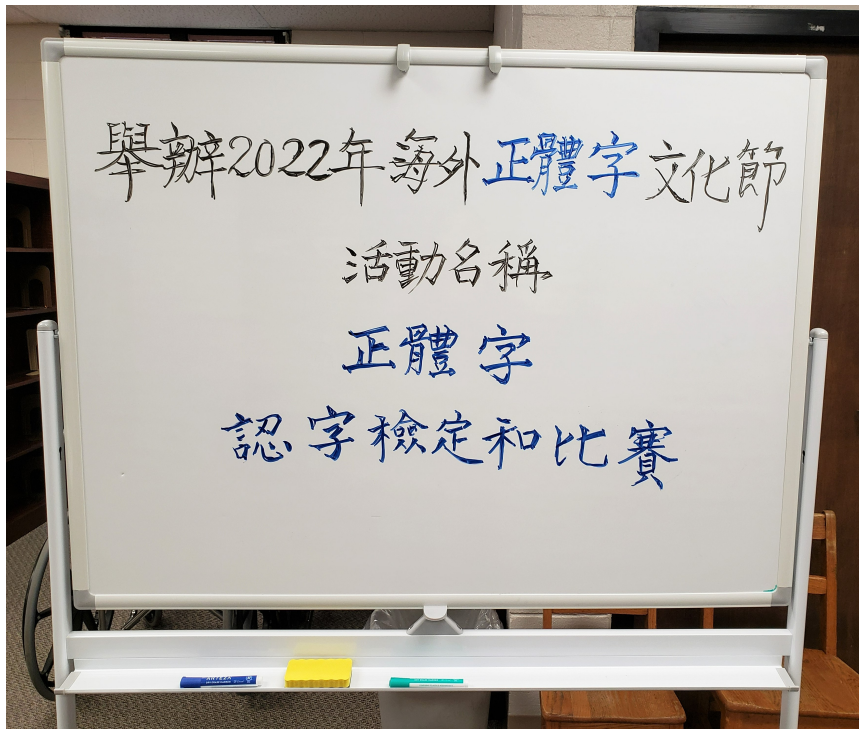 舉辦2022年海外正體字文化節
活動名稱
正體字
認字檢定和比賽
ARTEZA